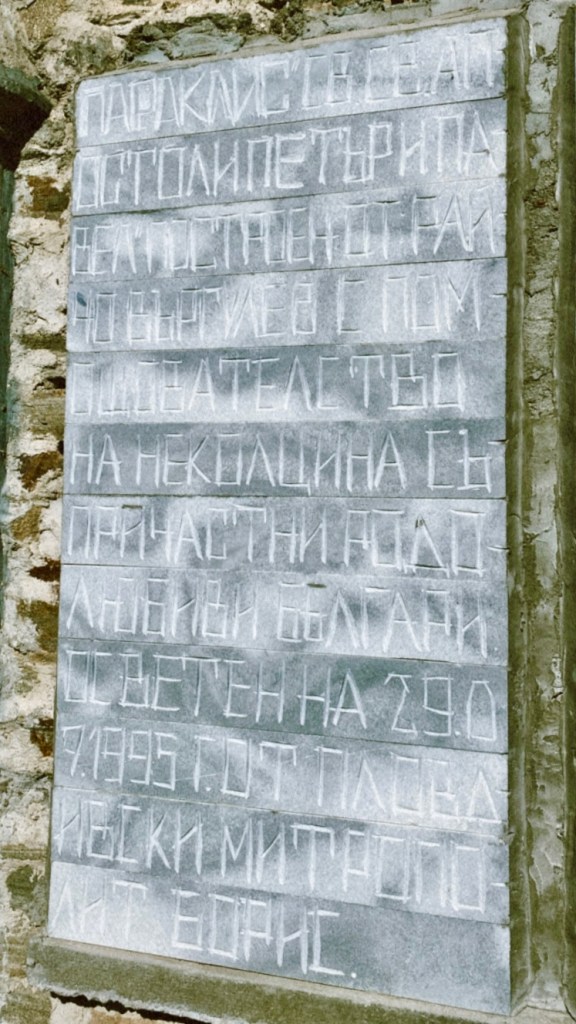 ПАРАКЛИС "СВ.СВ.АП
ОСТОЛИ ПЕТЪР И ПА-
ВЕЛ" ПОСТРОЕН ОТ: РАЙ
ЧО ВЪРГИЛЕВ С ПОМ-
ОЩОВАТЕЛСТВО
НА НЕКОЛЦИНА СЪ-
ПРИЧАСТНИ РОДО-
ЛЮБИВИ БЪЛГАРИ.
ОСВЕТЕН НА 29.0
9.1995 Г. ОТ ПЛОВД-
ИВСКИ МИТРОПО-
ЛИТ БОРИС.